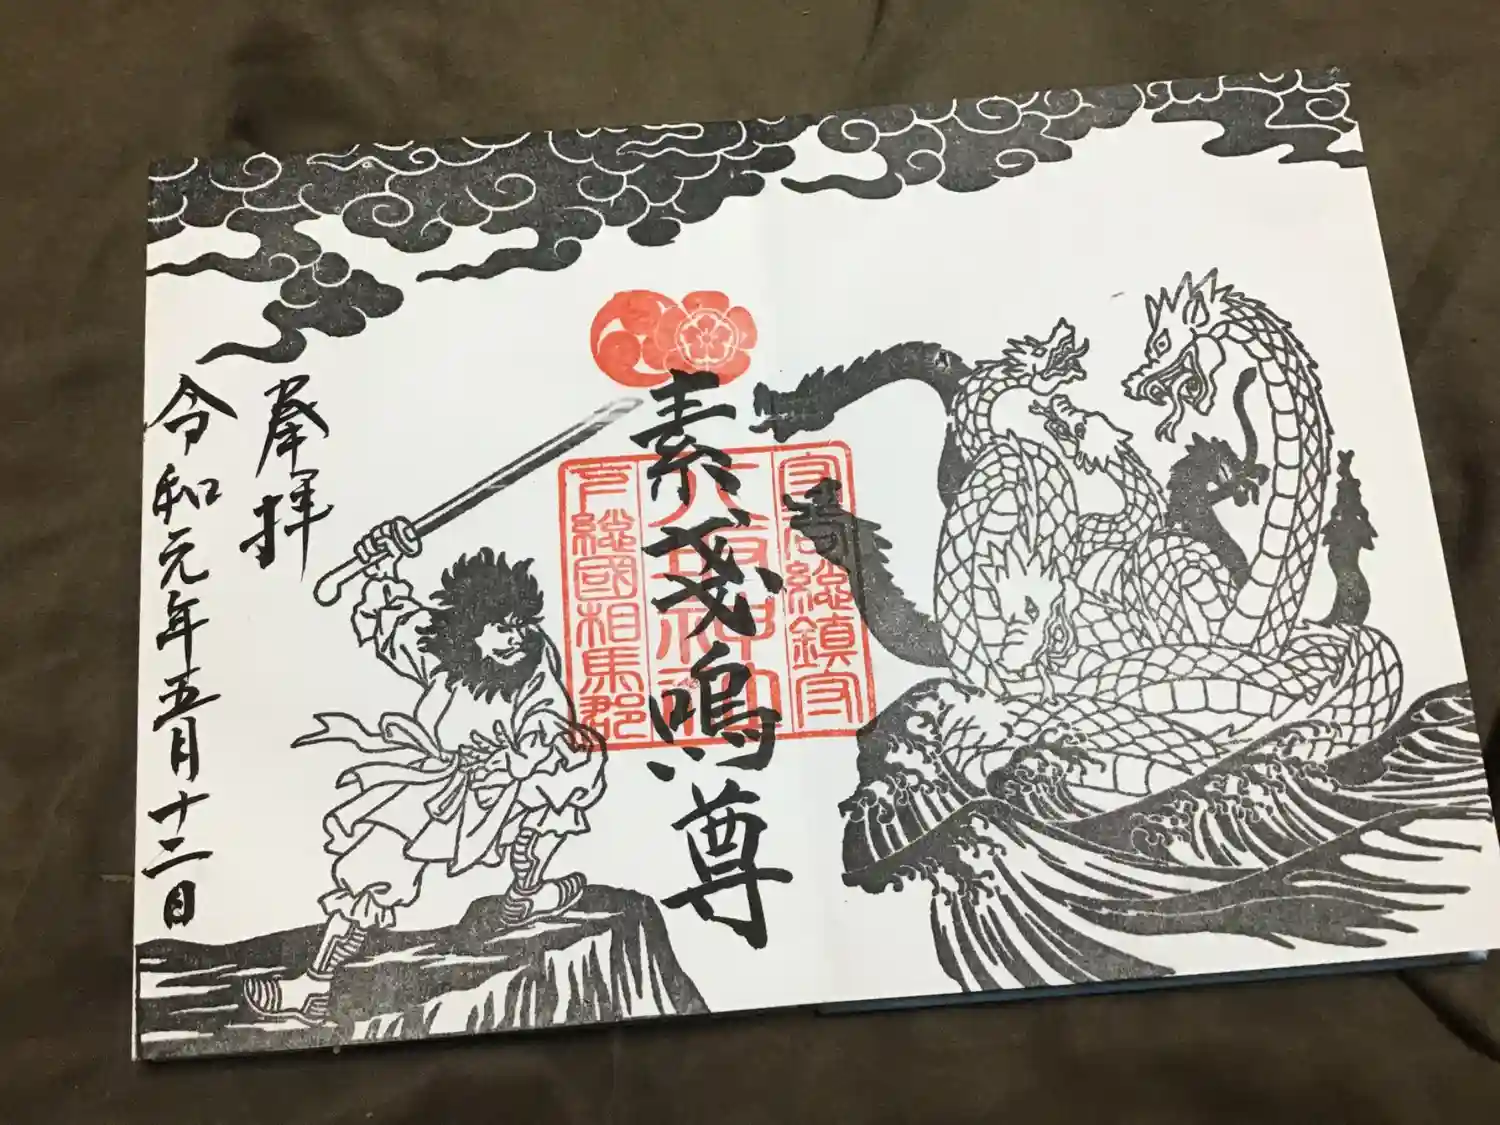 素戔嗚尊
守谷總鎮守
八坂神社
下總國相馬郡
奉拝
令和元年五月十二日